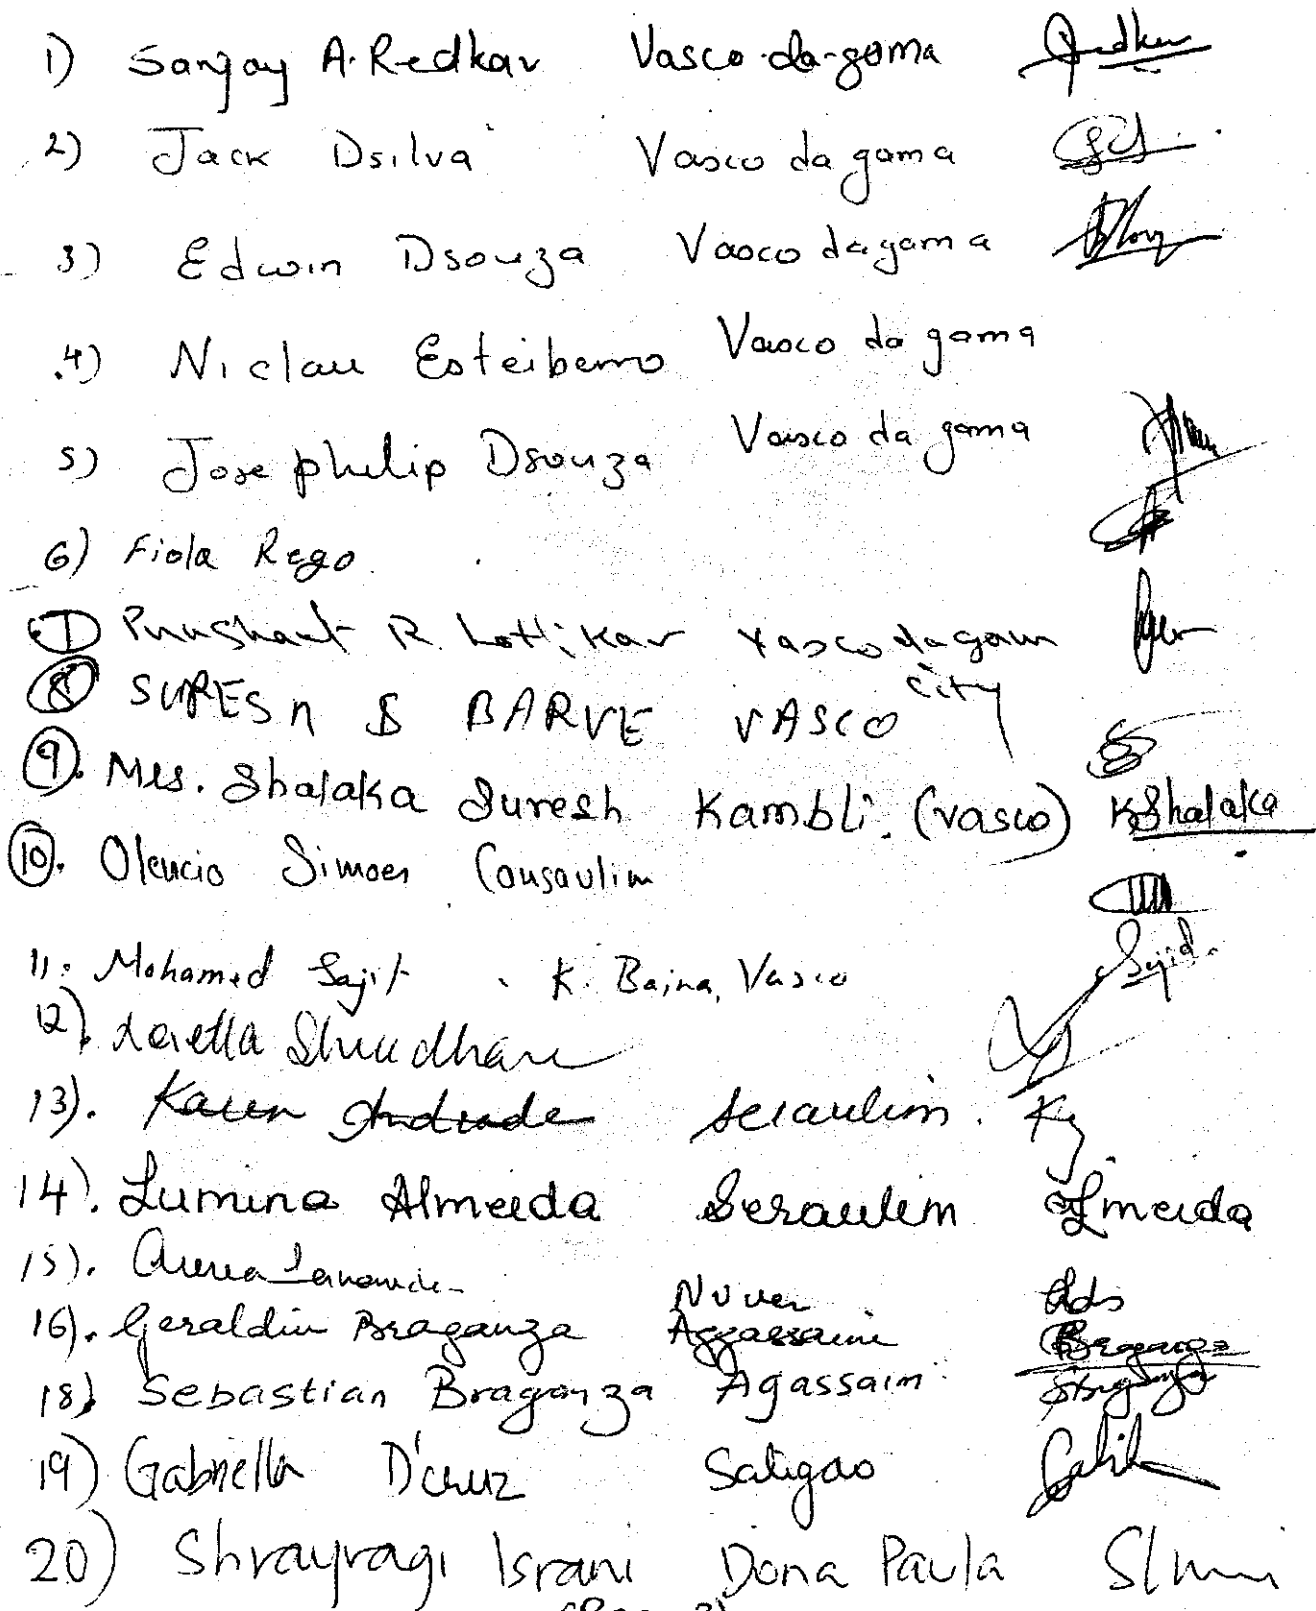 1) Sanjay A. Redkar Vasco-da-goma Redkar
2) Jack Dsilva Vasco da gama
3) Edwin Dsouza Vasco dagama
4) Niclau Esteibero Vasco da gama
5) Jose philip Dsouza Vasco da gama
6) Fiola Rego
7 Prashant R. Lotlikar vasco da gam city
8 SURESH S BARVE VASCO
9. Mrs. Shalaka Suresh Kambli. (vasco) KShalaka
10. Olencio Simoes Cansaulim
11. Mohamed Sajit K. Baina, Vasco Sajid.
12)
13). Karen Andrade Seraulim.
14). Lumina Almeida Seraulim Almeida
15).
16). Geraldin Braganza Aggassaim Braganza
18) Sebastian Braganza Agassaim
19) Gabriella D'cruz Saligao
20) Shrayragi Israni Dona Paula